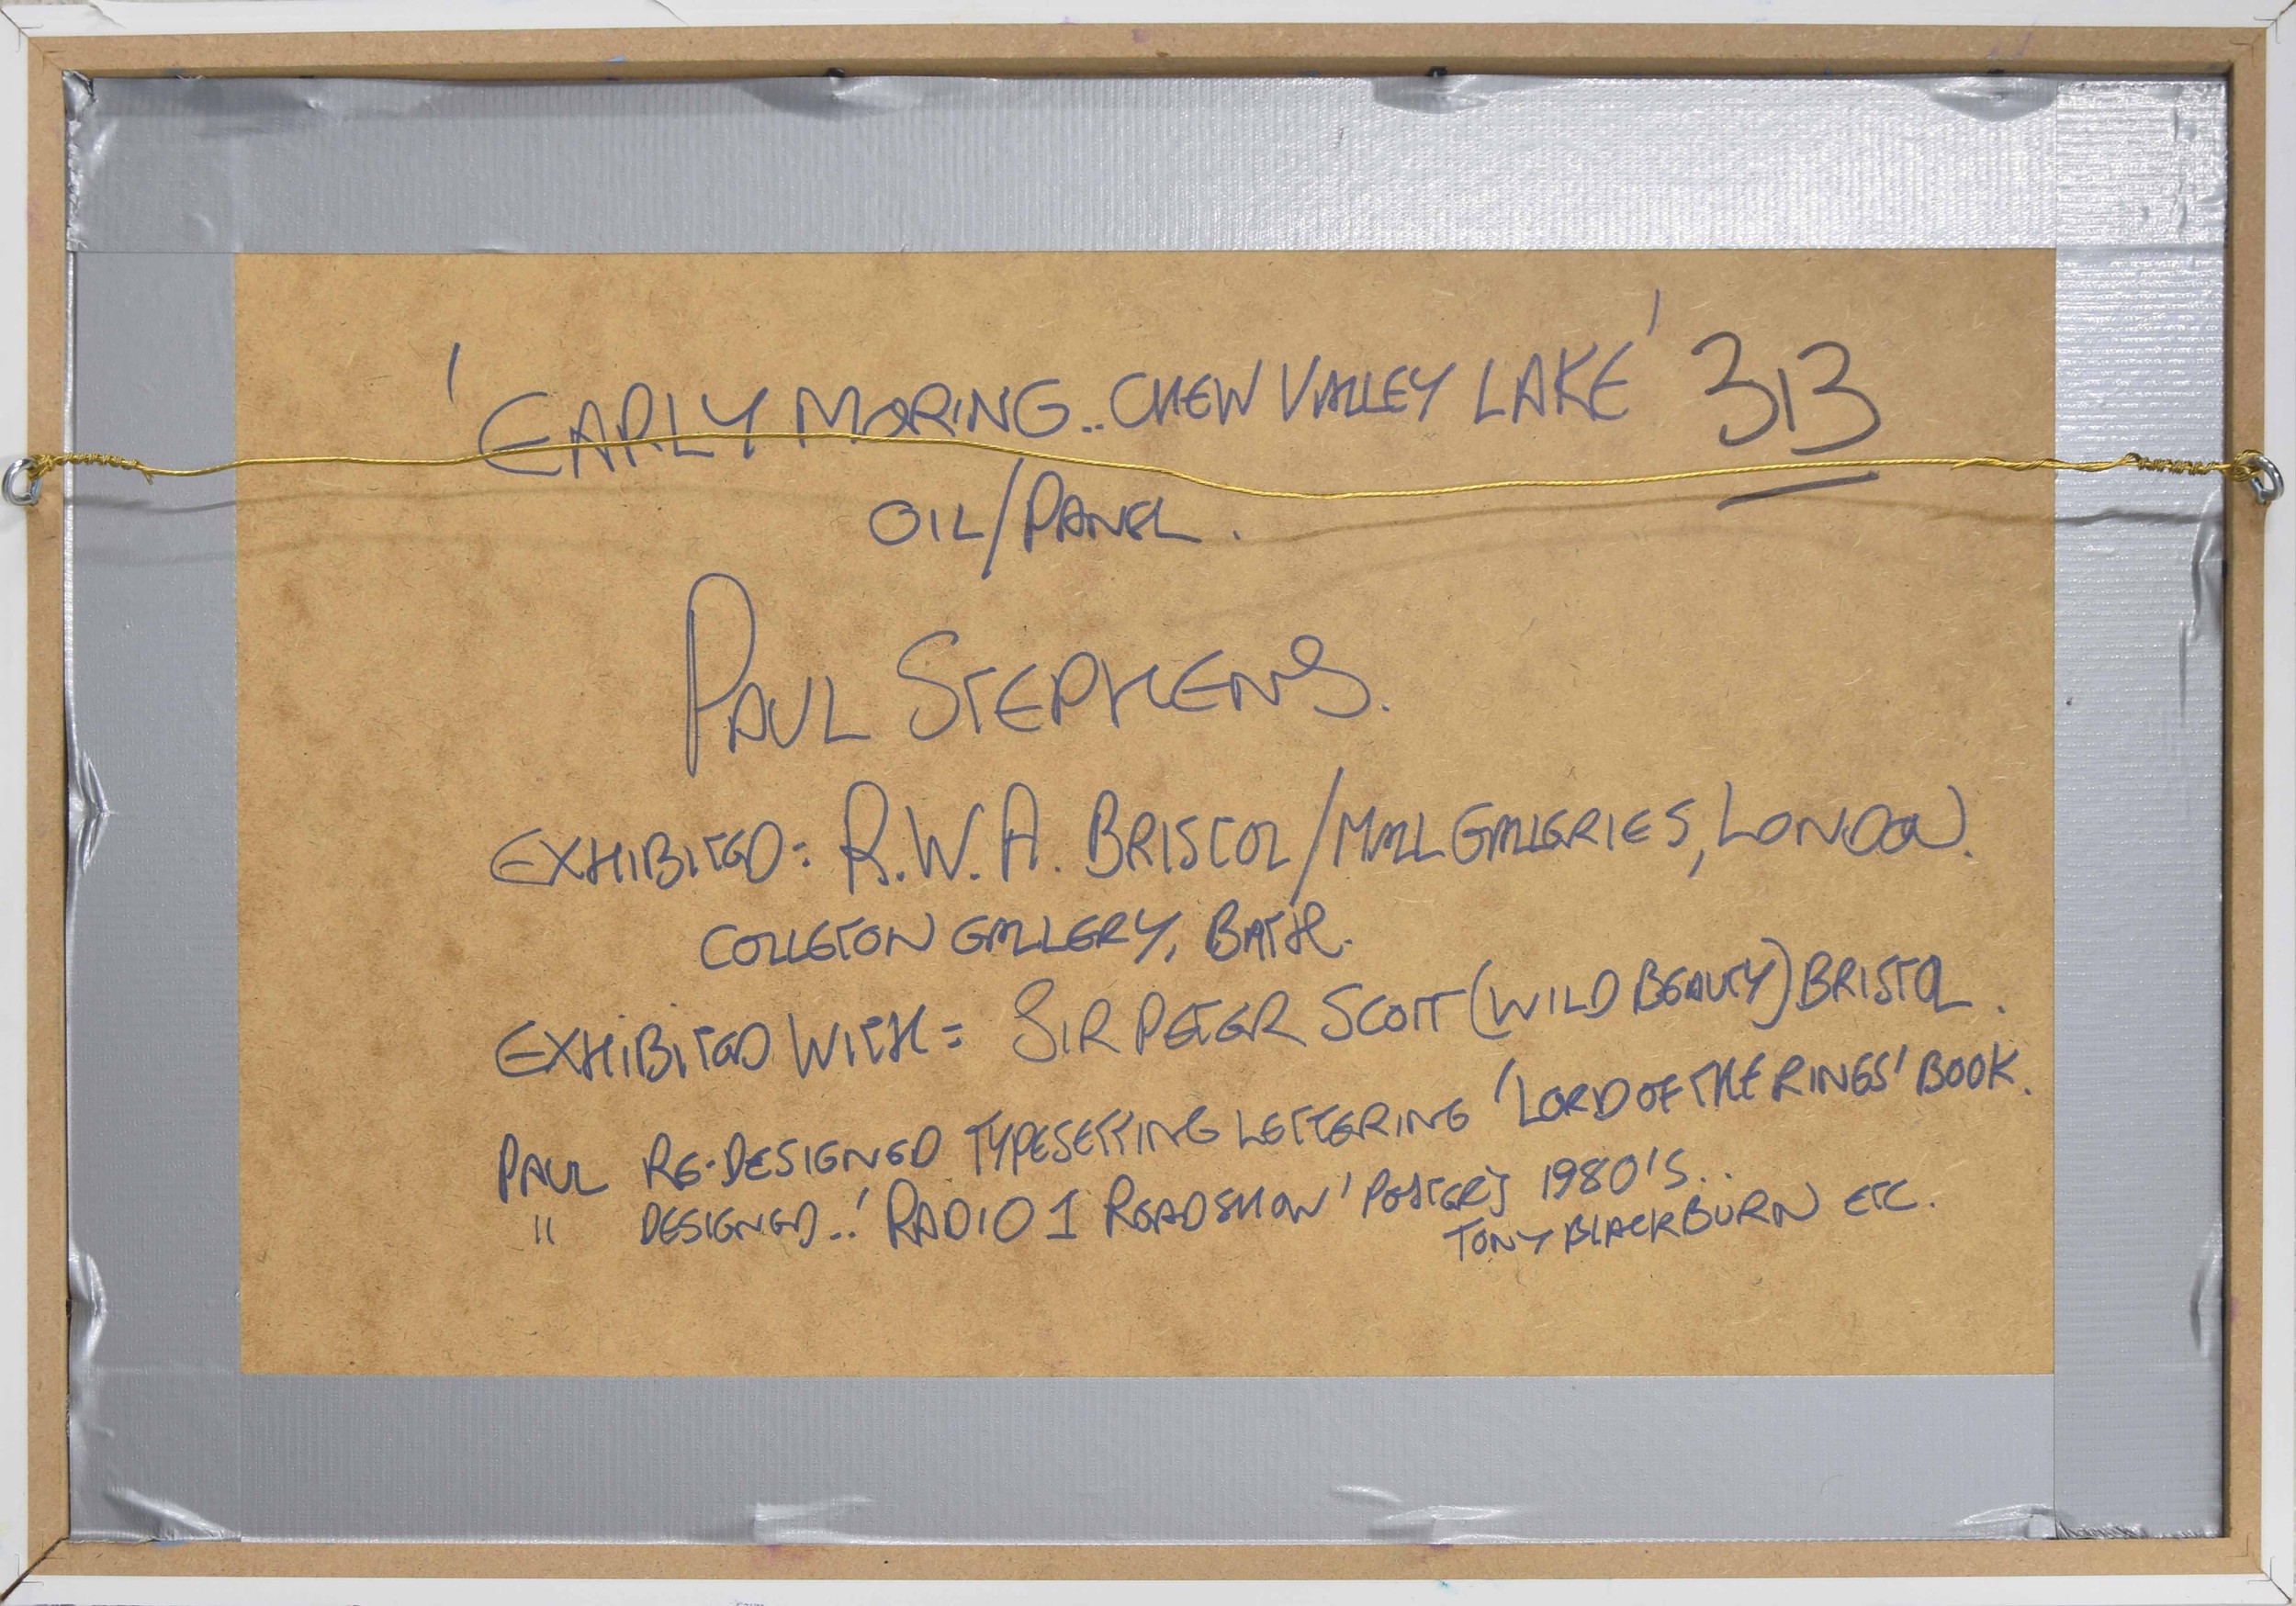 'EARLY MORING.. CHEW VALLEY LAKE' 313
OIL/PANEL.
PAUL STEPHENS.
EXHIBITED: R.W.A. BRISTOL/MALL GALLERIES, LONDON.
COLLETON GALLERY, BATH.
EXHIBITED WITH = SIR PETER SCOTT (WILD BEAUTY) BRISTOL.
PAUL RE-DESIGNED TYPESETTING LETTERING 'LORD OF THE RINGS' BOOK.
" DESIGNED..'RADIO 1 ROADSHOW' POSTERS 1980'S..
TONY BLACKBURN ETC.